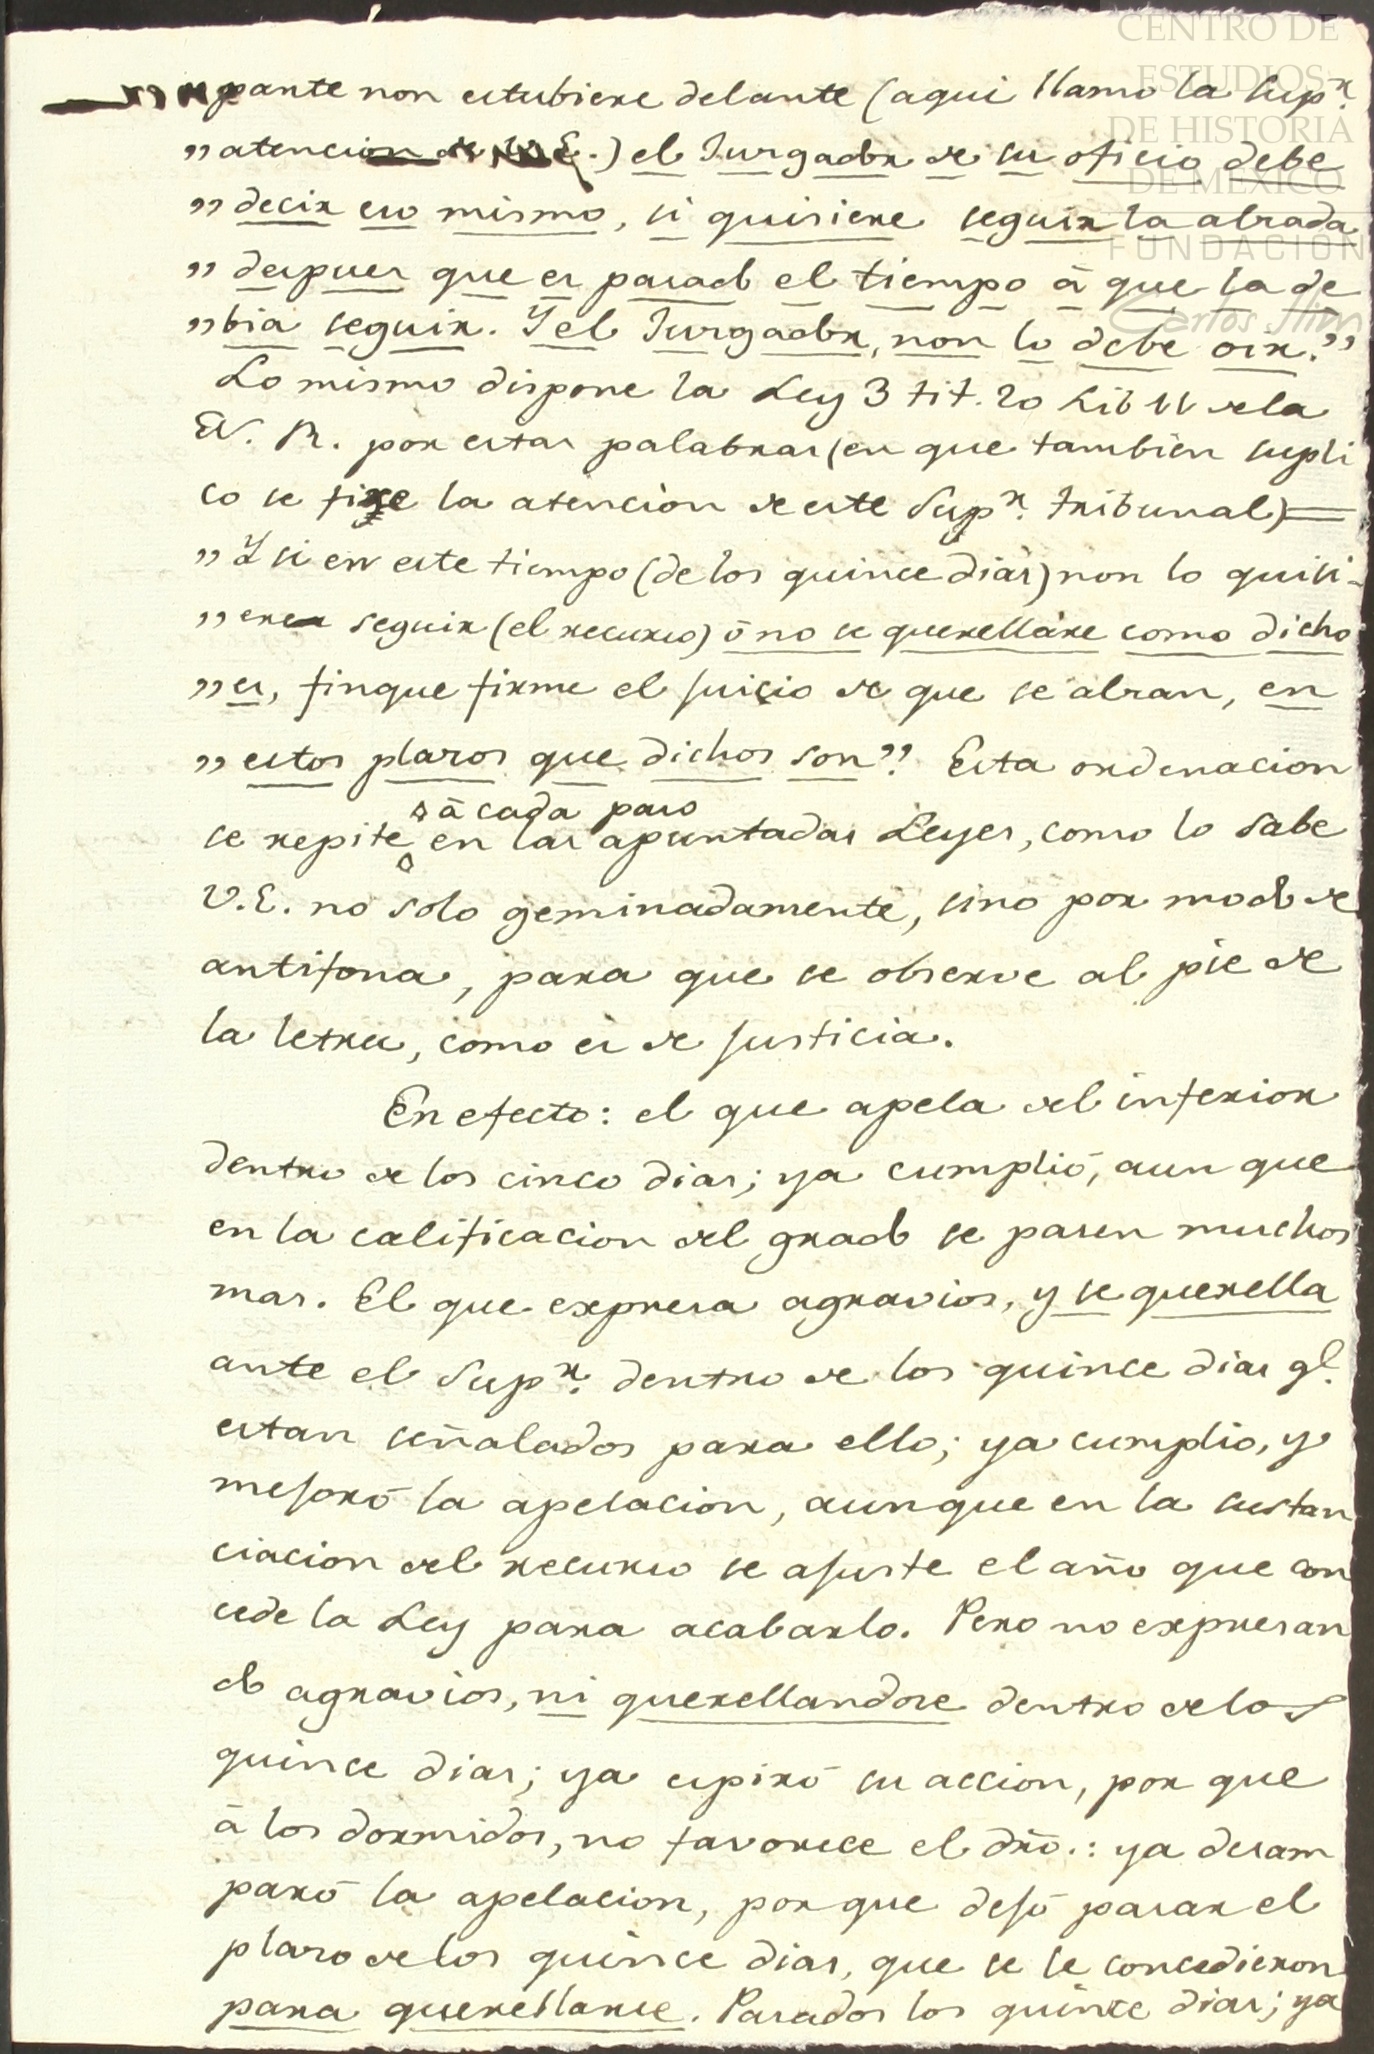 CENTRO DE
ESTUDIOS
DE HISTORIA
DE MEXICO
FUNDACIÓN
Carlos Slim
pante non estubiere delante (aqui llamo la Sup.r
„ atencion de V.E.) el Jurgador de su oficio debe
„ decir eso mismo, si quisiere seguir la alrada
„ despues que es pasado el tiempo á que la de
„ bia seguir. Y el Jurgador, non lo debe oir.”
Lo mismo dispone la Ley 3 tit. 20 Lib 11 de la
N. R. por estas palabras (en que tambien supli
co se fixe la atencion de este Sup.r tribunal) =
„ Y si en este tiempo (de los quince dias) non lo quisi-
„ ere seguir (el recurso) ó no se querelláre como dicho
„ es, finque firme el juicio de que se alran, en
„ estos plazos que dichos son”. Esta ordenacion
á cada paso
se repite en las apuntadas Leyes, como lo sabe
V.E. no solo geminadamente, sino por modo de
antifona, para que se observe al pie de
la letra, como es de justicia.
En efecto: el que apela del inferior
dentro de los cinco dias; ya cumplió, aun que
en la calificacion del grado se pasen muchos
mas. El que expresa agravios, y se querella
ante el Sup.r dentro de los quince dias q.e
estan señalados para ello; ya cumplio, y
mejoró la apelacion, aunque en la sustan
ciacion del recurso se ajuste el año que con
cede la Ley para acabarlo. Pero no expresan
do agravios, ni querellandose dentro de los
quince dias; ya espiró su accion, por que
á los dormidos, no favorece el dro.: ya desam
paró la apelacion, por que dejó pasar el
plazo de los quince dias, que se le concedieron
para querellarse. Pasados los quince dias; ya